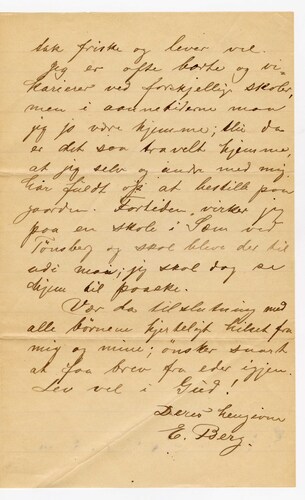 friske og lever vel.
Jeg er ofte borte og vi-
karierer ved forskjellige skoler,
men i aannetiderne maa
jeg jo være hjemme; thi da
er det saa travelt hjemme,
at jeg selv og andre med mig
har fuldt op at bestille paa
gaarden. Fortiden virker jeg
paa en skole i Sem ved
Tønsberg og skal blive der til
udi mai; jeg skal dog se
hjem til paaske.
Vær da tilslutning med
alle børnene hjerteligt hilset fra
mig og mine; ønsker snart
at faa brev fra eder igjen.
Lev vel i Gud!
Deres hengivne
E. Berg.